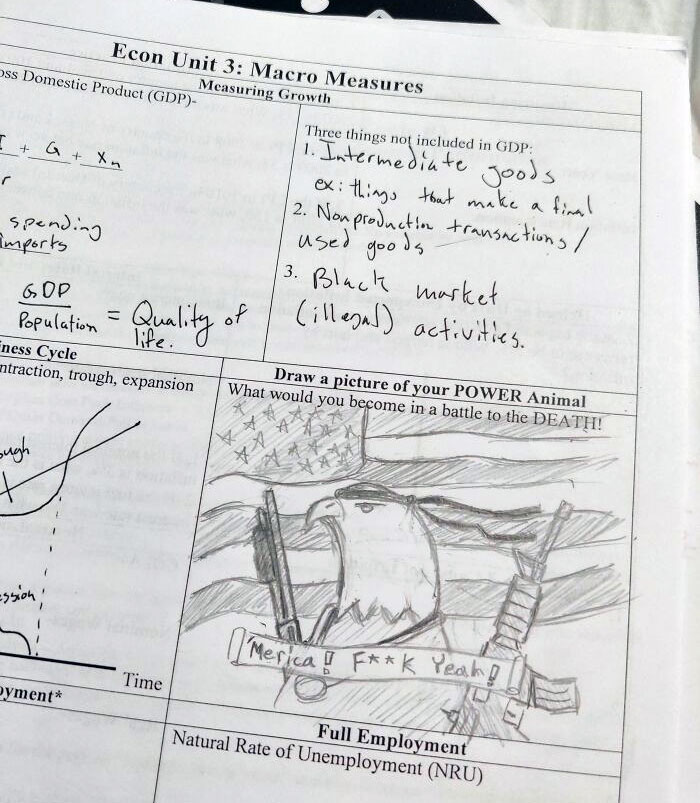 Econ Unit 3: Macro Measures
Measuring Growth
Domestic Product (GDP)-
+ G + Xn
spending
imports
GDP
Population = Quality of
life.
Three things not included in GDP:
1. Intermediate goods
ex: things that make a final
2. Nonproduction transactions/
used goods
3. Black market
(illegal) activities.
Cycle
trough, expansion
Time
Draw a picture of your POWER Animal
What would you become in a battle to the DEATH!
'Merica!! F**K Yeah!
Full Employment
Natural Rate of Unemployment (NRU)